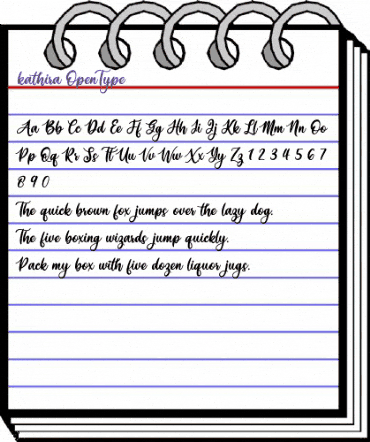 kathira OpenType
Aa Bb Cc Dd Ee Ff Gg Hh Ii Jj Kk Ll Mm Nn Oo
Pp Qq Rr Ss Tt Uu Vv Ww Xx Yy Zz 1 2 3 4 5 6 7
8 9 0
The quick brown fox jumps over the lazy dog.
The five boxing wizards jump quickly.
Pack my box with five dozen liquor jugs.